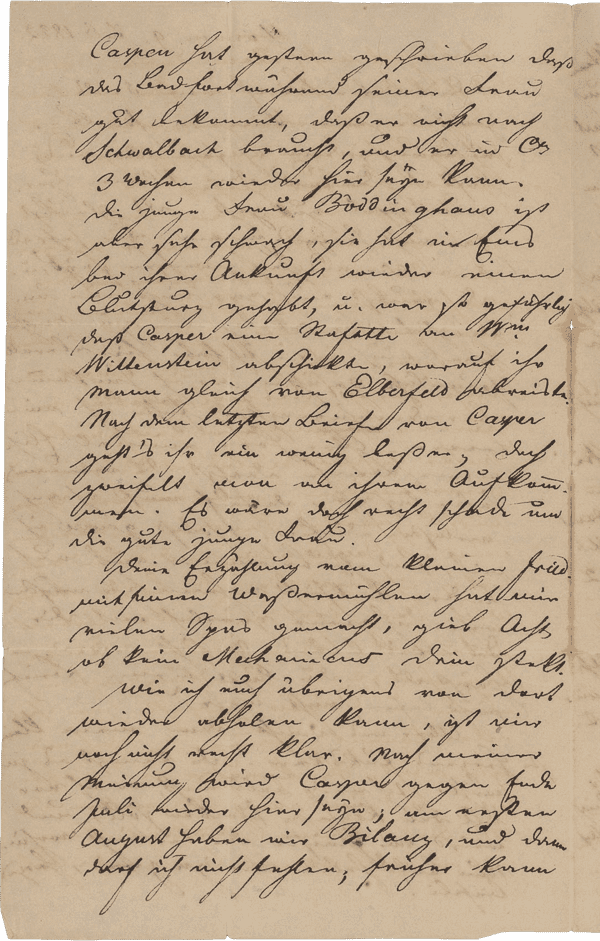 Casper hat gestern geschrieben daß
das Bad fortwährend seiner Frau
gut bekommt, daß er nicht nach
Schwalbach braucht, und er in Ca
3 Wochen wieder hier seyn kann.
die junge Frau Böddinghaus ist
aber sehr schwach, sie hat in Ems
bey ihrer Ankunft wieder einen
Blutsturz gehabt, u. war so gefährlich
daß Casper eine Stafette an Wm
Wittenstein abschickte, worauf ihr
Mann gleich von Elberfeld abreiste.
Nach dem letzten Briefe von Casper
geht's ihr ein wenig beßer, doch
zweifelt man an ihrem Aufkom¯
men. Es wäre doch recht schade um
die gute junge Frau.
Deine Erzählung vom kleinen Fried.
mit seinen Waßermühlen hat mir
vielen Spas gemacht, gieb Acht
ob kein Mechanicus drin stekt.
Wie ich euch übrigens von dort
wieder abholen kann, ist mir
noch nicht recht klar. Nach meiner
Meinung wird Casper gegen Ende
Juli wieder hier seyn; am ersten
August haben wir Bilanz, und dann
darf ich nicht fehlen; früher kann